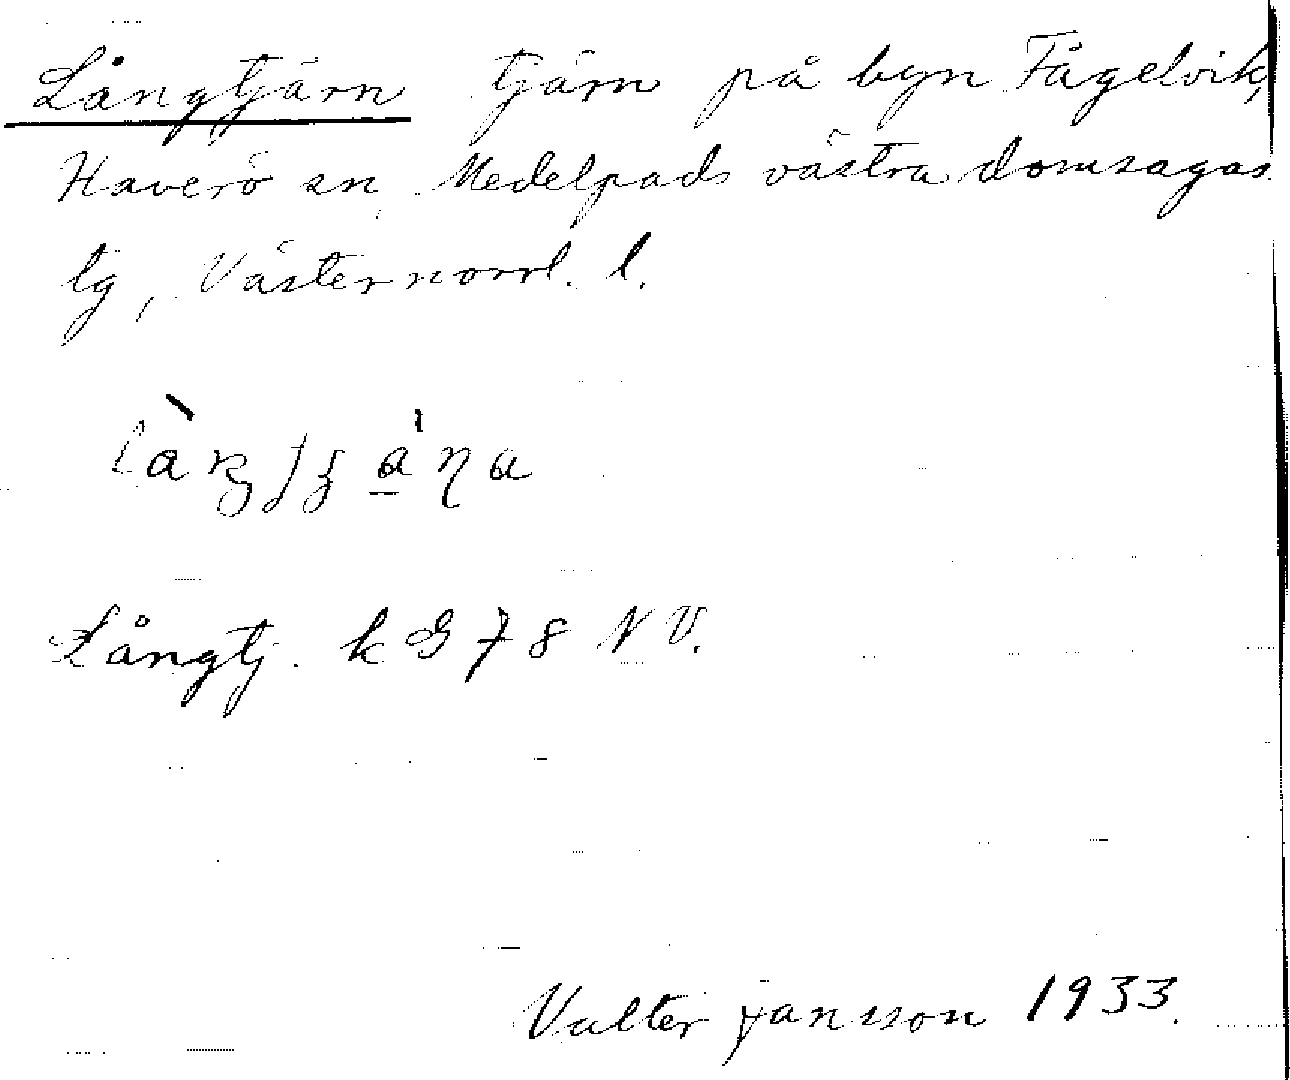 Långtjärn tjärn på byn Fågelvik,
Haverö sn, Medelpads västra domsagas
tg, Västernorrl. l.
Långtj. k G 78 NV.
Valter Jansson 1933.